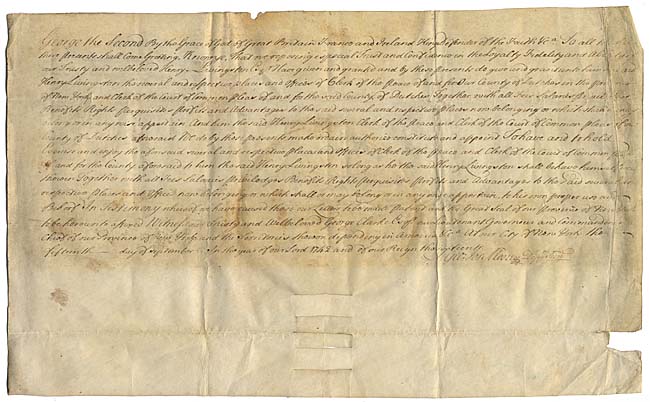 George the Second By the Grace of God of Great Britain France and Ireland King Defender of the Faith &ca To all to
these presents shall Come Greeting Know ye, That we reposing especial Trust and Confidence in the Loyalty Fidelity and
our Trusty and welbeloved Henry Livingston Esqr Have given and granted and by these presents do give and grant unto him
Henry Livingston the several and respective places and offices of Clerk of the peace of and for Our County of Dutches in the pro
of New York and Clerk of the Court of Common pleas of and for the said County of Dutches Together with all Fees Salaries
Benefits Rights perquisites profits and Advantages to the said several and respective places now belonging or which shall
in any ways appertain And him the said Henry Livingston Clerk of the peace and Clerk of the Court of Common pleas of
County of Dutches aforesaid We do by these presents make ordain authorize constitute and appoint To have and to hold
and enjoy the aforesaid several and respective places and offices of Clerk of the peace and Clerk of the Court of Common
and for the County aforesaid to him the said Henry Livingston so long as he the said Henry Livingston shall behave himself
therein Together with all Fees Salaries priviledges Benefits Rights perquisites profits and Advantages to the said
respective places and offices now belonging or which shall or may belong or in any ways appertain to his own proper use and
In Testimony whereof we have caused these our Letters to be made patent and the Great Seal of our province of
to be hereunto affixed Witness our Trusty and Welbeloved George Clarke Esqr our Lieutenant Governour and Commander
Chief of our Province of New York and the Territories thereon depending in America &ca At our City of New York the
fifteenth day of September In the year of our Lord 1742 and of our Reign the sixteenth